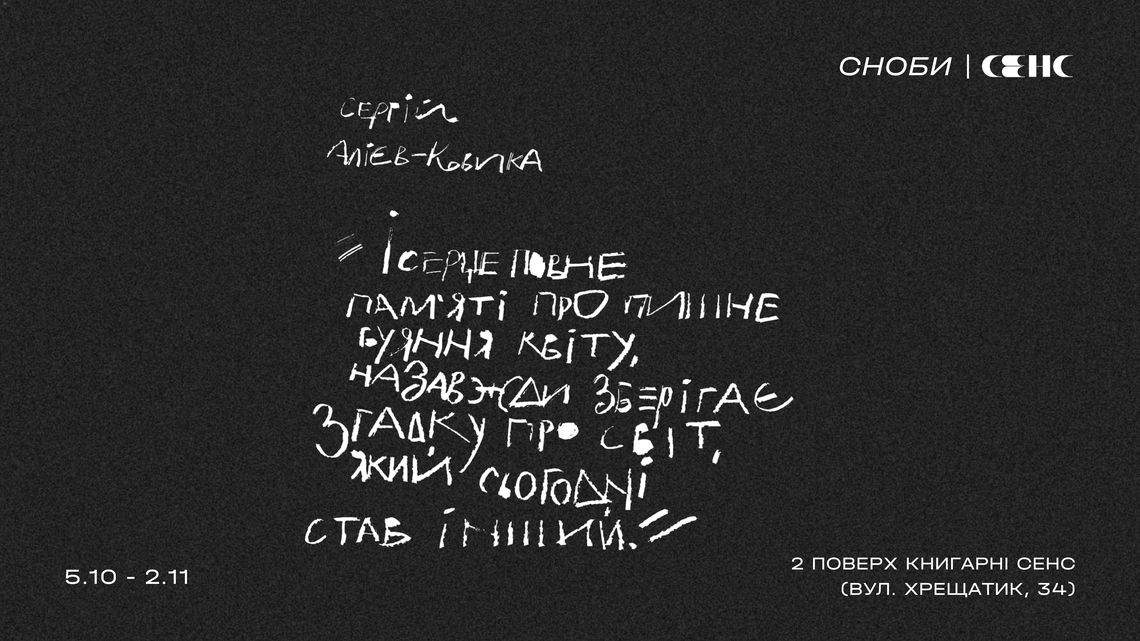 СНОБИ | СЕНС
Сергій
Алієв-Ковика
"І серце повне
пам'яті про пишне
буяння квіту,
назавжди зберігає
згадку про світ,
який сьогодні
став інший."
5.10 - 2.11
2 ПОВЕРХ КНИГАРНІ СЕНС
(ВУЛ. ХРЕЩАТИК, 34)